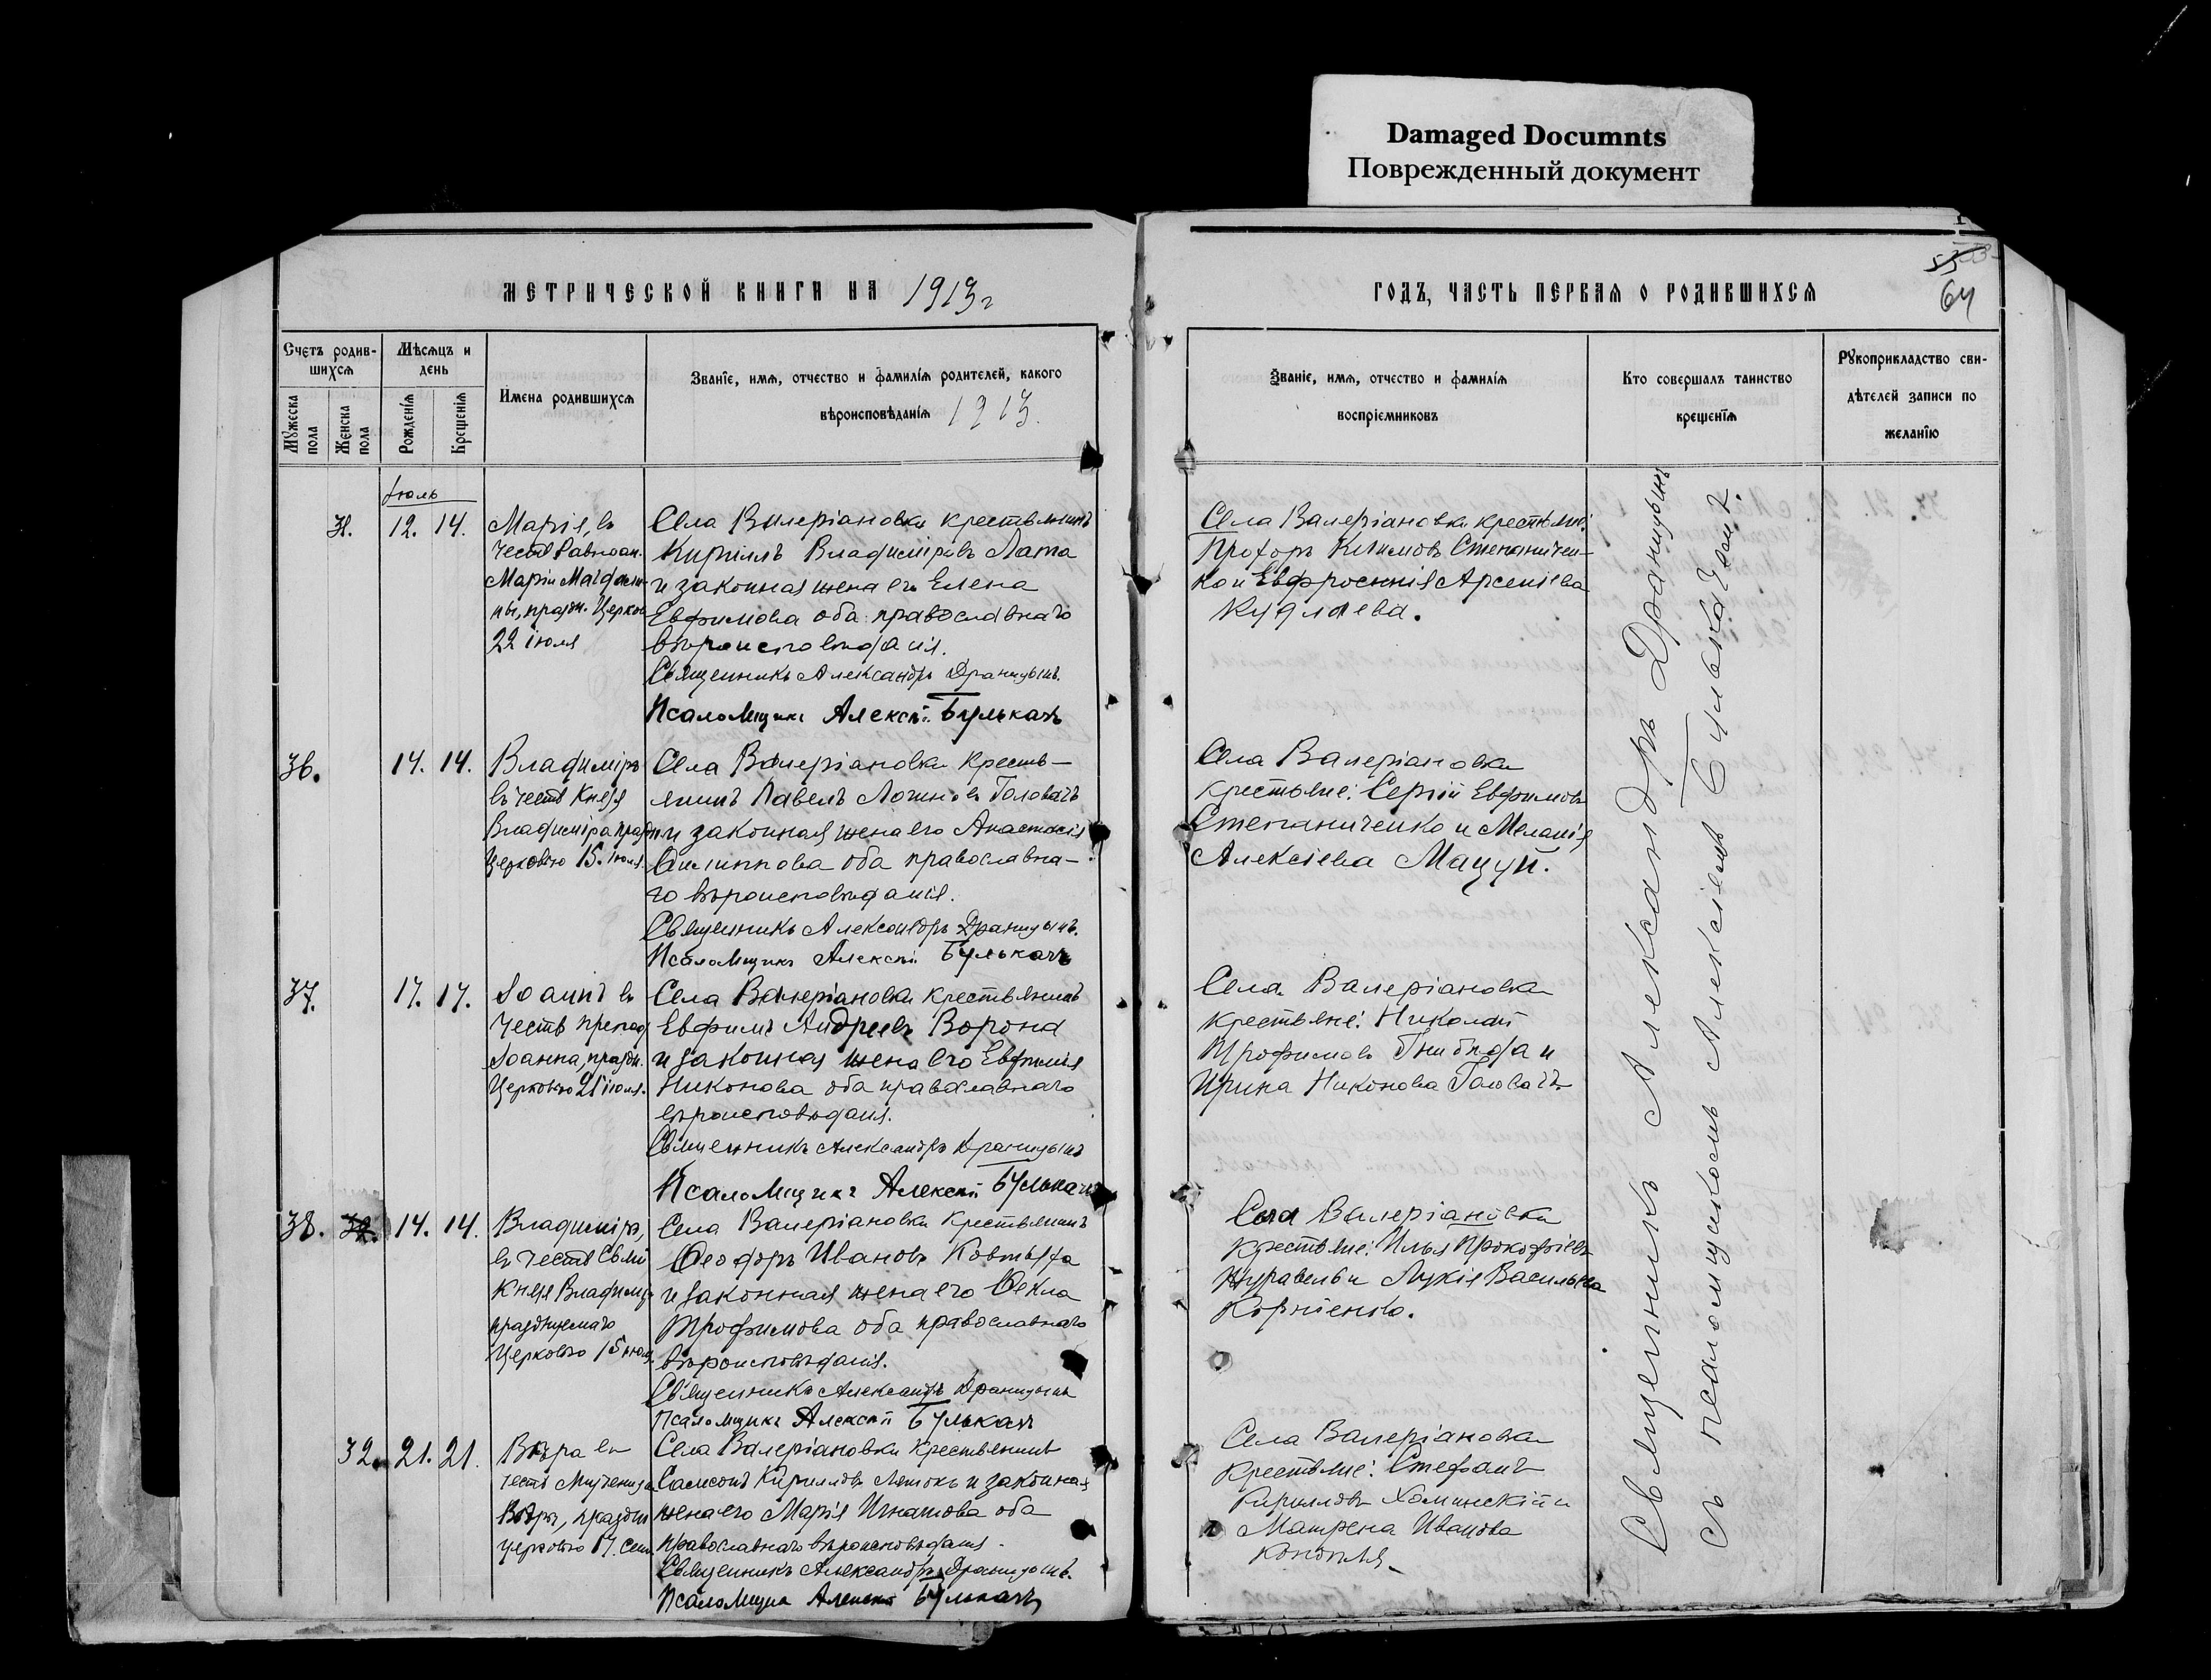 Damaged Documnts
Поврежденный документ
МЕТРИЧЕСКОЙ КНИГИ НА 1913 г
Счетъ родив-
шихся
Мѣсяцъ и
день
Мужеска пола
Женска пола
Рожденія
Крещенія
Имена родившихся
Званіе, имя, отчество и фамилія родителей, какого
вѣроисповѣданія 1913.
Іюль
31. 12. 14.
Марія, въ
честь Равноап.
Маріи Магдали-
ны, праздн. Церков
22 Іюля
Села Валеріановки крестьянинъ
Кириллъ Владиміровъ Лата
и законная жена его Елена
Евфимова оба православнаго
вѣроисповѣданія.
Священникъ Александръ Драницынъ.
Псаломщикъ Алексій Булькачъ
36. 14. 14.
Владиміръ
въ честь Князя
Владиміра, праздн
Церковью 15 Іюля.
Села Валеріановки Кресть-
янинъ Павелъ Логиновъ Головачъ
и законная жена его Анастасія
Филиппова оба православна-
го вѣроисповѣданія.
Священникъ Александръ Драницынъ.
Псаломщикъ Алексій Булькачъ
37. 17. 17.
Іоаннъ въ
честь препод
Іоанна, праздн.
Церковью 21 іюля.
Села Валеріановки крестьянинъ
Евфимъ Андреевъ Ворона
и законная жена его Евфимія
Никонова оба православнаго
вѣроисповѣданія.
Священникъ Александръ Драницынъ
Псаломщикъ Алексій Булькачъ
38. 14. 14.
Владиміръ,
въ честь Свят
Князя Владиміра
празднуемаго
Церковью 15 іюля
Села Валеріановки Крестьянинъ
Ѳеодоръ Ивановъ Ковтырга
и законная жена его Ѳекла
Трофимова оба православнаго
вѣроисповѣданія.
Священникъ Александръ Драницынъ
Псаломщикъ Алексій Булькачъ
32. 21. 21.
Вѣра въ
честь Мученицы
Вѣры, праздн
церковью 17. Сент
Села Валеріановки Крестьянинъ
Самсонъ Кирилловъ и законная
жена его Марія Игнатова оба
православнаго вѣроисповѣданія.
Священникъ Александръ Драницынъ.
Псаломщикъ Алексій Булькачъ
53
64
ГОДЪ, ЧАСТЬ ПЕРВАЯ О РОДИВШИХСЯ
Званіе, имя, отчество и фамилія
воспріемниковъ
Кто совершалъ таинство
крещенія
Рукоприкладство сви-
дѣтелей записи по
желанію
Села Валеріановки крестьяне:
Прохоръ Климовъ Степаничен-
ко и Евфросинія Арсеніева
Кудлаева.
Села Валеріановки
крестьяне: Сергій Евфимовъ
Степаниченко и Меланія
Алексіева Мацуй.
Села Валеріановки
крестьяне: Николай
Трофимовъ Гнибѣда и
Ирина Никонова Головачъ
Села Валеріановки
крестьяне: Илья Прокофіевъ
Журавель и Лукія Васильева
Корніенко.
Села Валеріановки
крестьяне: Стефанъ
Кирилловъ Хоминскій и
Матрена Иванова
Конопля
Священникъ Александръ Драницынъ
съ псаломщикомъ Алексіемъ Булькачемъ.